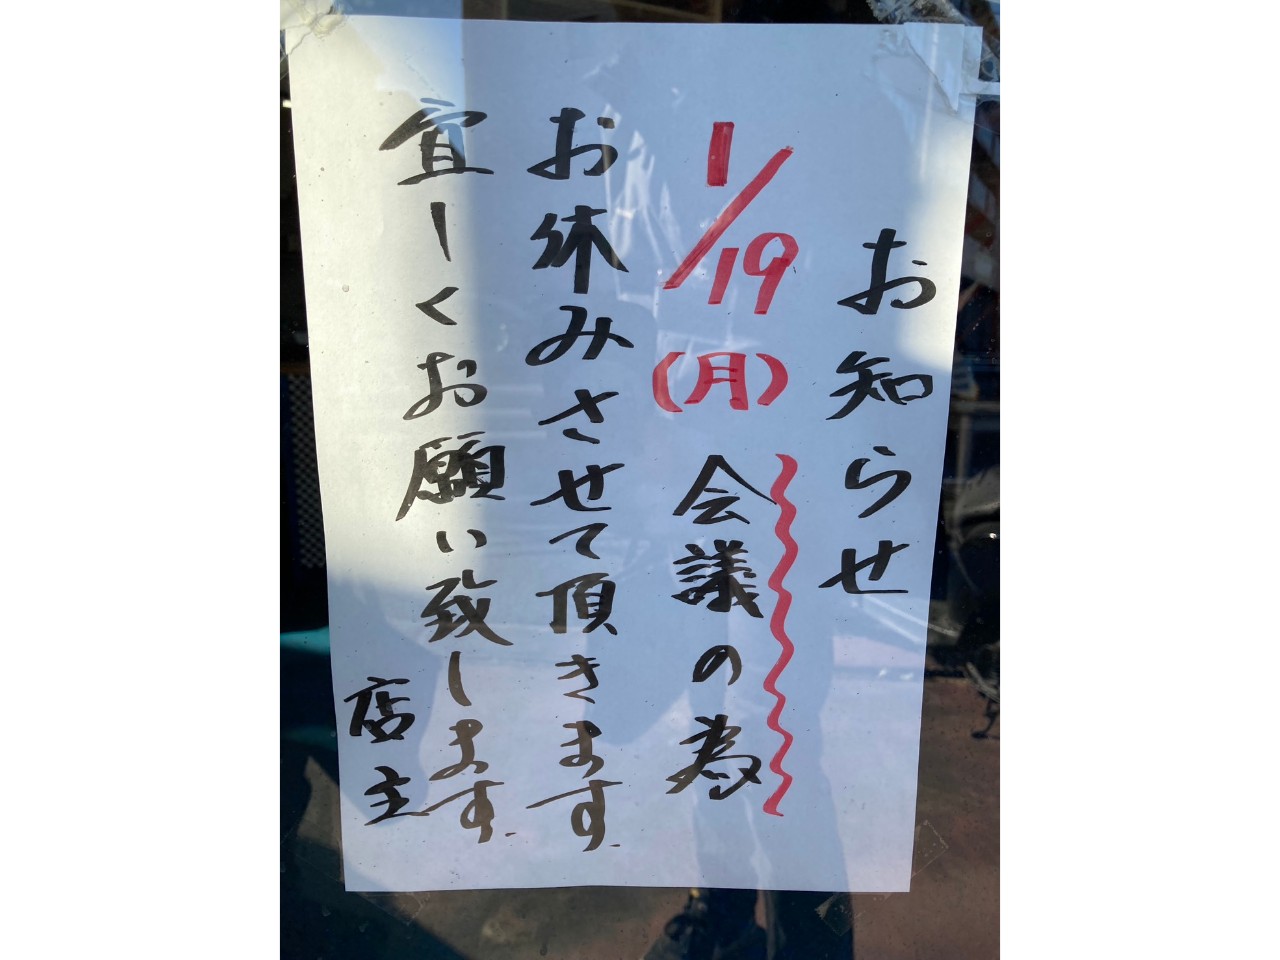 お知らせ
1/19(月)会議の為
お休みさせて頂きます.
宜しくお願い致します.
店主